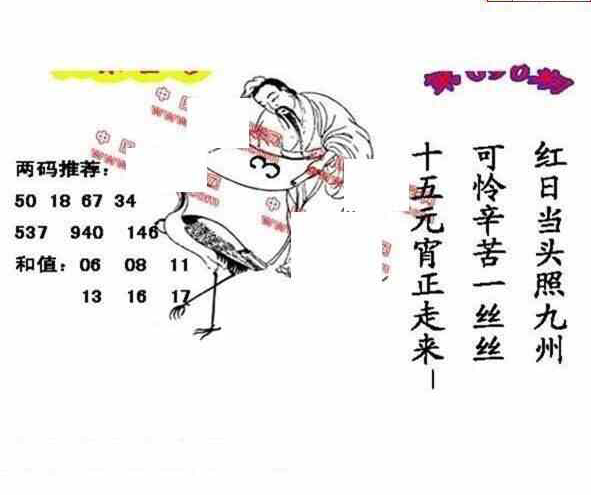 两码推荐：
50 18 67 34
537 940 146
和值：06 08 11
13 16 17
3
红日当头照九州
可怜辛苦一丝丝
十五元宵正走来—